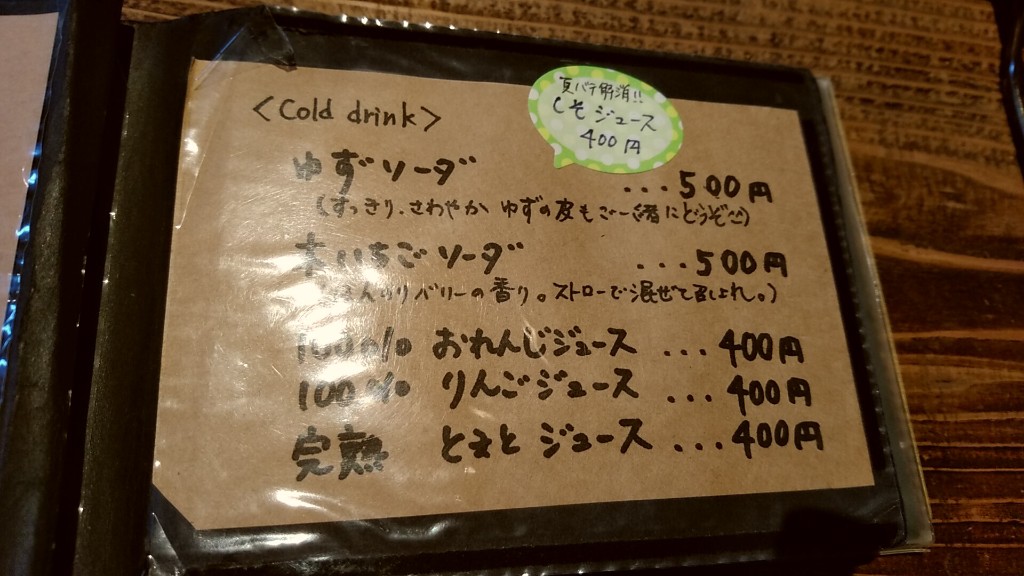 <Cold drink>
夏バテ解消!!
しそジュース
400円
ゆずソーダ ...500円
(すっきり、さわやか ゆずの皮もご一緒にどうぞ)
いちごソーダ ...500円
ベリーの香り。ストローで混ぜて召しませ。)
100% おれんじジュース ...400円
100% りんごジュース ...400円
完熟 とまとジュース ...400円